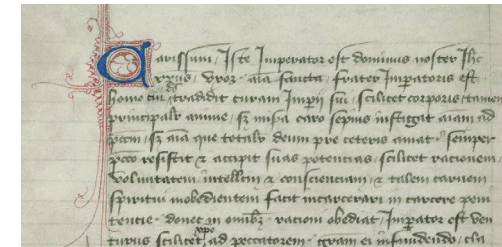 Carissimi Iste Imperator est dominus noster Ihc
xpus Uxor aia sancta frater Impatoris est
homo cui tradidit curam Impii sui scilicet corporis tamen
principalr anime sz misa caro sepius instigat aiam ad
pccm sz aia que totalr deum pre ceteris amat semper
pcco resistit & accipit suas potencias scilicet racionem
voluntatem intellcm & conscienciam & talem carnem
spiritui inobedientem facit incarcerari in carcere peni
tencie donec in omibz racioni obediat Impator est ven
turus scilicet xpc ad peccatorem gram ei infundendo cla